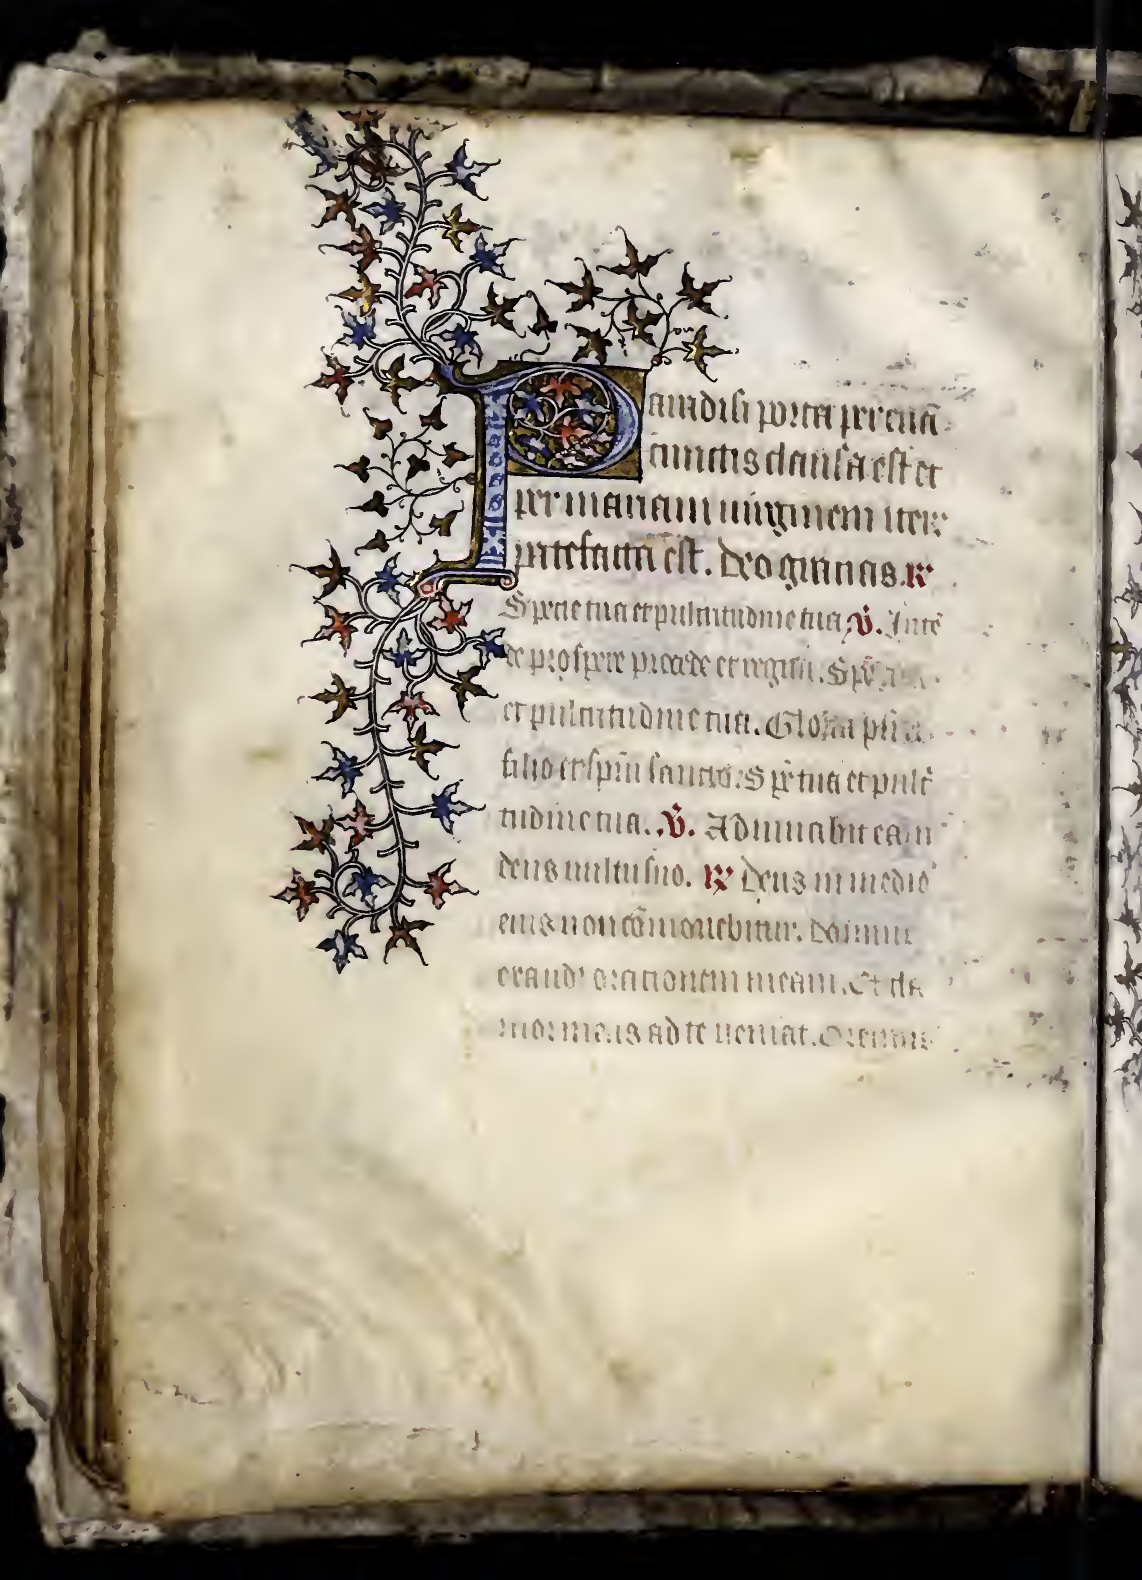 Paradisi porta per euã
cunctis clausa est et
per mariam uirginem iterũ
patefacta est. Deo gracias. ℟
Specie tua et pulcritudine tua. ℣. Intẽ
de prospere procede et regna. Spẽ
et pulcritudine tua. Gloria pr̃i
filio et sp̃iu sancto. Spẽ tua et pulcr̃
tudine tua. ℣. Adiuuabit eam
deus uultu suo. ℟ Deus in medio
eius non cõmouebitur. Domine
exaud' orationem meam. Et cla
mor meus ad te ueniat. Oremus